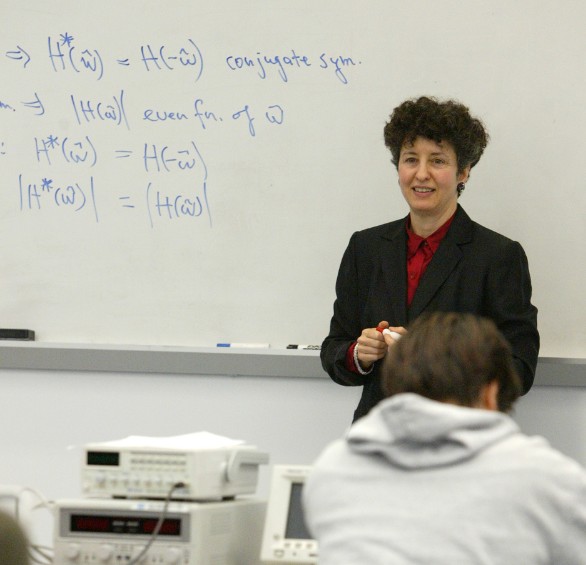 ⇒ H*(ω̂) = H(-ω̂) conjugate sym.
m. ⇒ |H(ω̂)| even fn. of ω̂
: H*(ω̂) = H(-ω̂)
|H*(ω̂)| = |H(ω̂)|